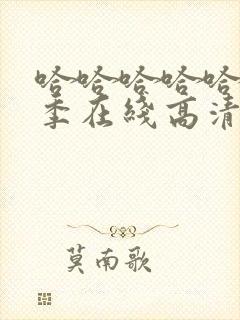 哈哈哈哈哈
季在线高清
莫南歌